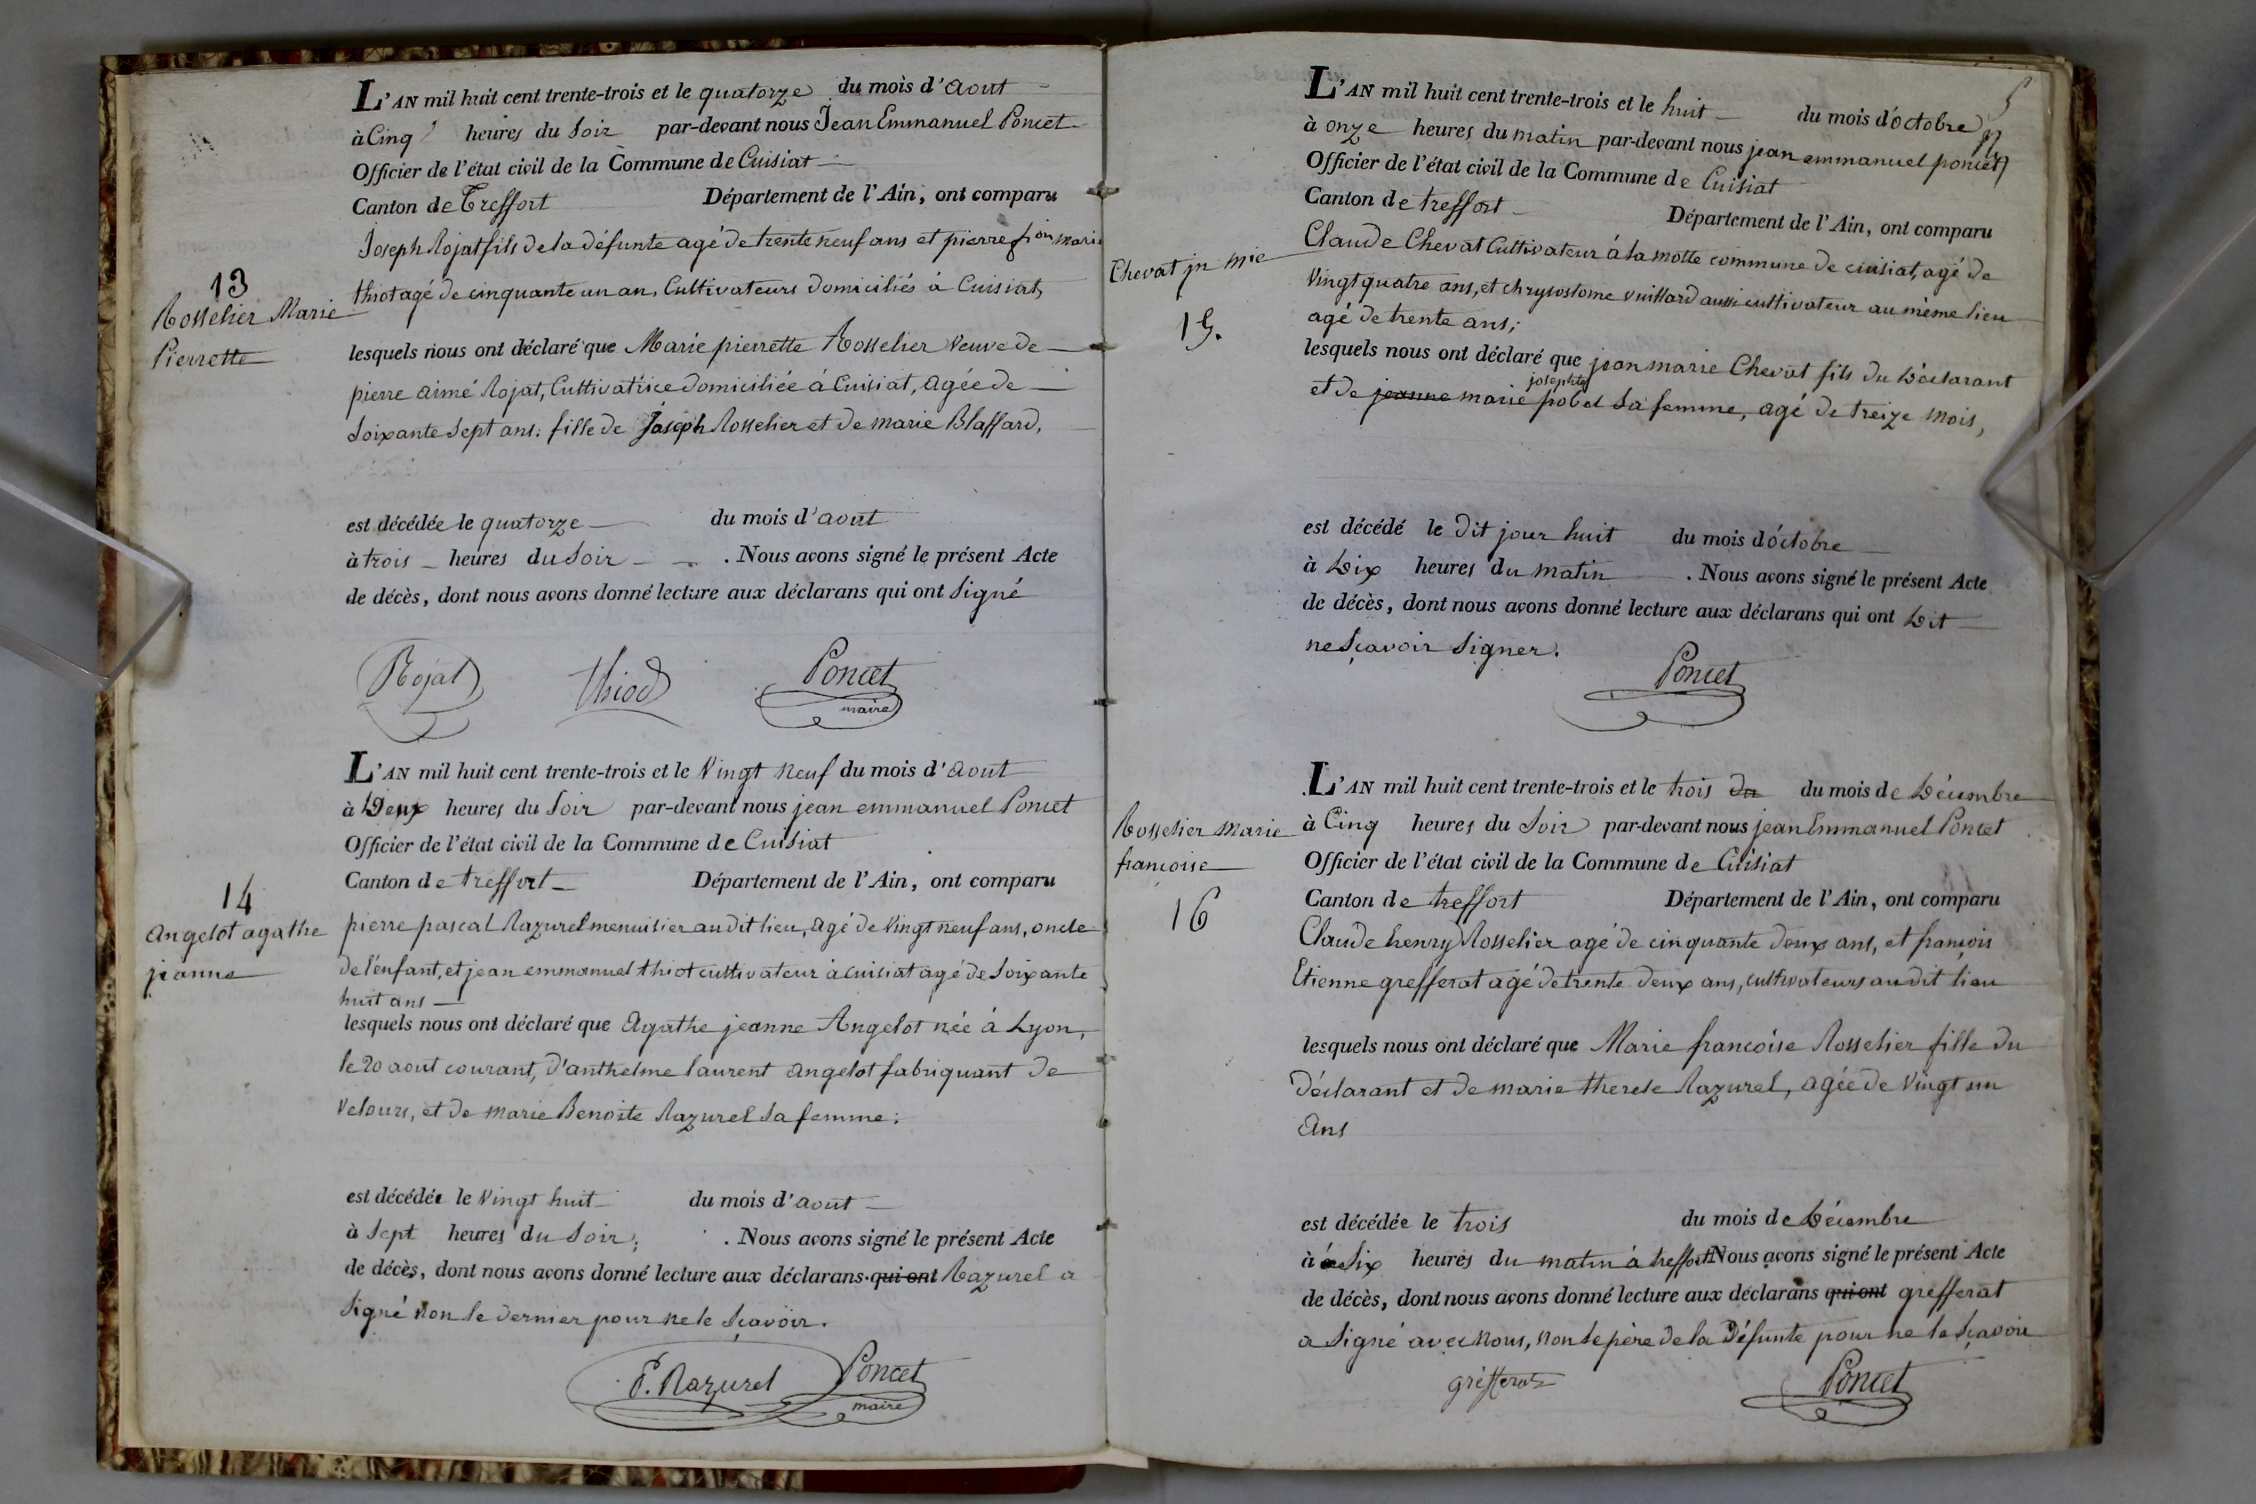 L'AN mil huit cent trente-trois et le quatorze du mois d'aout
à Cinq heures du Soir par-devant nous Jean Emmanuel Poncet
Officier de l'état civil de la Commune de Cuisiat
Canton de Treffort Département de l'Ain, ont comparu
Joseph Rojat fils de la défunte agé de trente neuf ans et pierre marie
thiot agé de cinquante un an, Cultivateurs domiciliés à Cuisiat,
13
Rosselier Marie
Pierrette
lesquels nous ont déclaré que Marie pierrette Rosselier Veuve de
pierre aimé Rojat, Cultivatrice domiciliée à Cuisiat, agée de
Soixante Sept ans: fille de Joseph Rosselier et de marie Blaffard,
est décédée le quatorze du mois d'aout
à trois heures du Soir . Nous avons signé le présent Acte
de décès, dont nous avons donné lecture aux déclarans qui ont Signé
Rojat Thiod Poncet
maire
L'AN mil huit cent trente-trois et le Vingt neuf du mois d'aout
à Deux heures du Soir par-devant nous jean emmanuel Poncet
Officier de l'état civil de la Commune de Cuisiat
Canton de treffort Département de l'Ain, ont comparu
14
angelot agathe
jeanne
pierre pascal Razurel menuisier au dit lieu, agé de Vingt neuf ans, oncle
de l'enfant, et jean emmanuel thiot cultivateur à cuisiat agé de Soixante
huit ans
lesquels nous ont déclaré que Agathe jeanne Angelot née à Lyon,
le 20 aout courant, d'anthelme laurent angelot fabriquant de
Velours, et de marie Benoite Razurel Sa femme;
est décédée le Vingt huit du mois d'aout
à Sept heures du Soir; . Nous avons signé le présent Acte
de décès, dont nous avons donné lecture aux déclarans qui ont Razurel a
Signé non le dernier pour ne le Sçavoir.
P. Razurel Poncet
maire
5
L'AN mil huit cent trente-trois et le huit du mois d'octobre
à onze heures du matin par-devant nous jean emmanuel poncet
Officier de l'état civil de la Commune de Cuisiat
Canton de treffort Département de l'Ain, ont comparu
Chevat jn mie
15.
Claude Chevat Cultivateur à la motte commune de cuisiat, agé de
Vingt quatre ans, et chrysostome vuillard aussi cultivateur au même lieu
agé de trente ans;
lesquels nous ont déclaré que jean marie Chevat fils du Déclarant
josephte
et de jeanne marie pobel Sa femme, agé de treize mois,
est décédé le dit jour huit du mois d'octobre
à Dix heures du matin . Nous avons signé le présent Acte
de décès, dont nous avons donné lecture aux déclarans qui ont Dit
ne Sçavoir Signer.
Poncet
L'AN mil huit cent trente-trois et le trois du du mois de Décembre
à Cinq heures du Soir par-devant nous jean Emmanuel Poncet
Officier de l'état civil de la Commune de Cuisiat
Canton de treffort Département de l'Ain, ont comparu
Rosselier Marie
francoise
16
Claude henry Rosselier agé de cinquante deux ans, et françois
Etienne grefferat agé de trente deux ans, cultivateurs au dit lieu
lesquels nous ont déclaré que Marie francoise Rosselier fille du
déclarant et de marie therese Razurel, agée de Vingt un
Ans
est décédée le trois du mois de Décembre
à Six heures du matin à treffort Nous avons signé le présent Acte
de décès, dont nous avons donné lecture aux déclarans qui ont grefferat
a Signé avec Nous, non le père de la Défunte pour ne le Sçavoir
grefferat Poncet